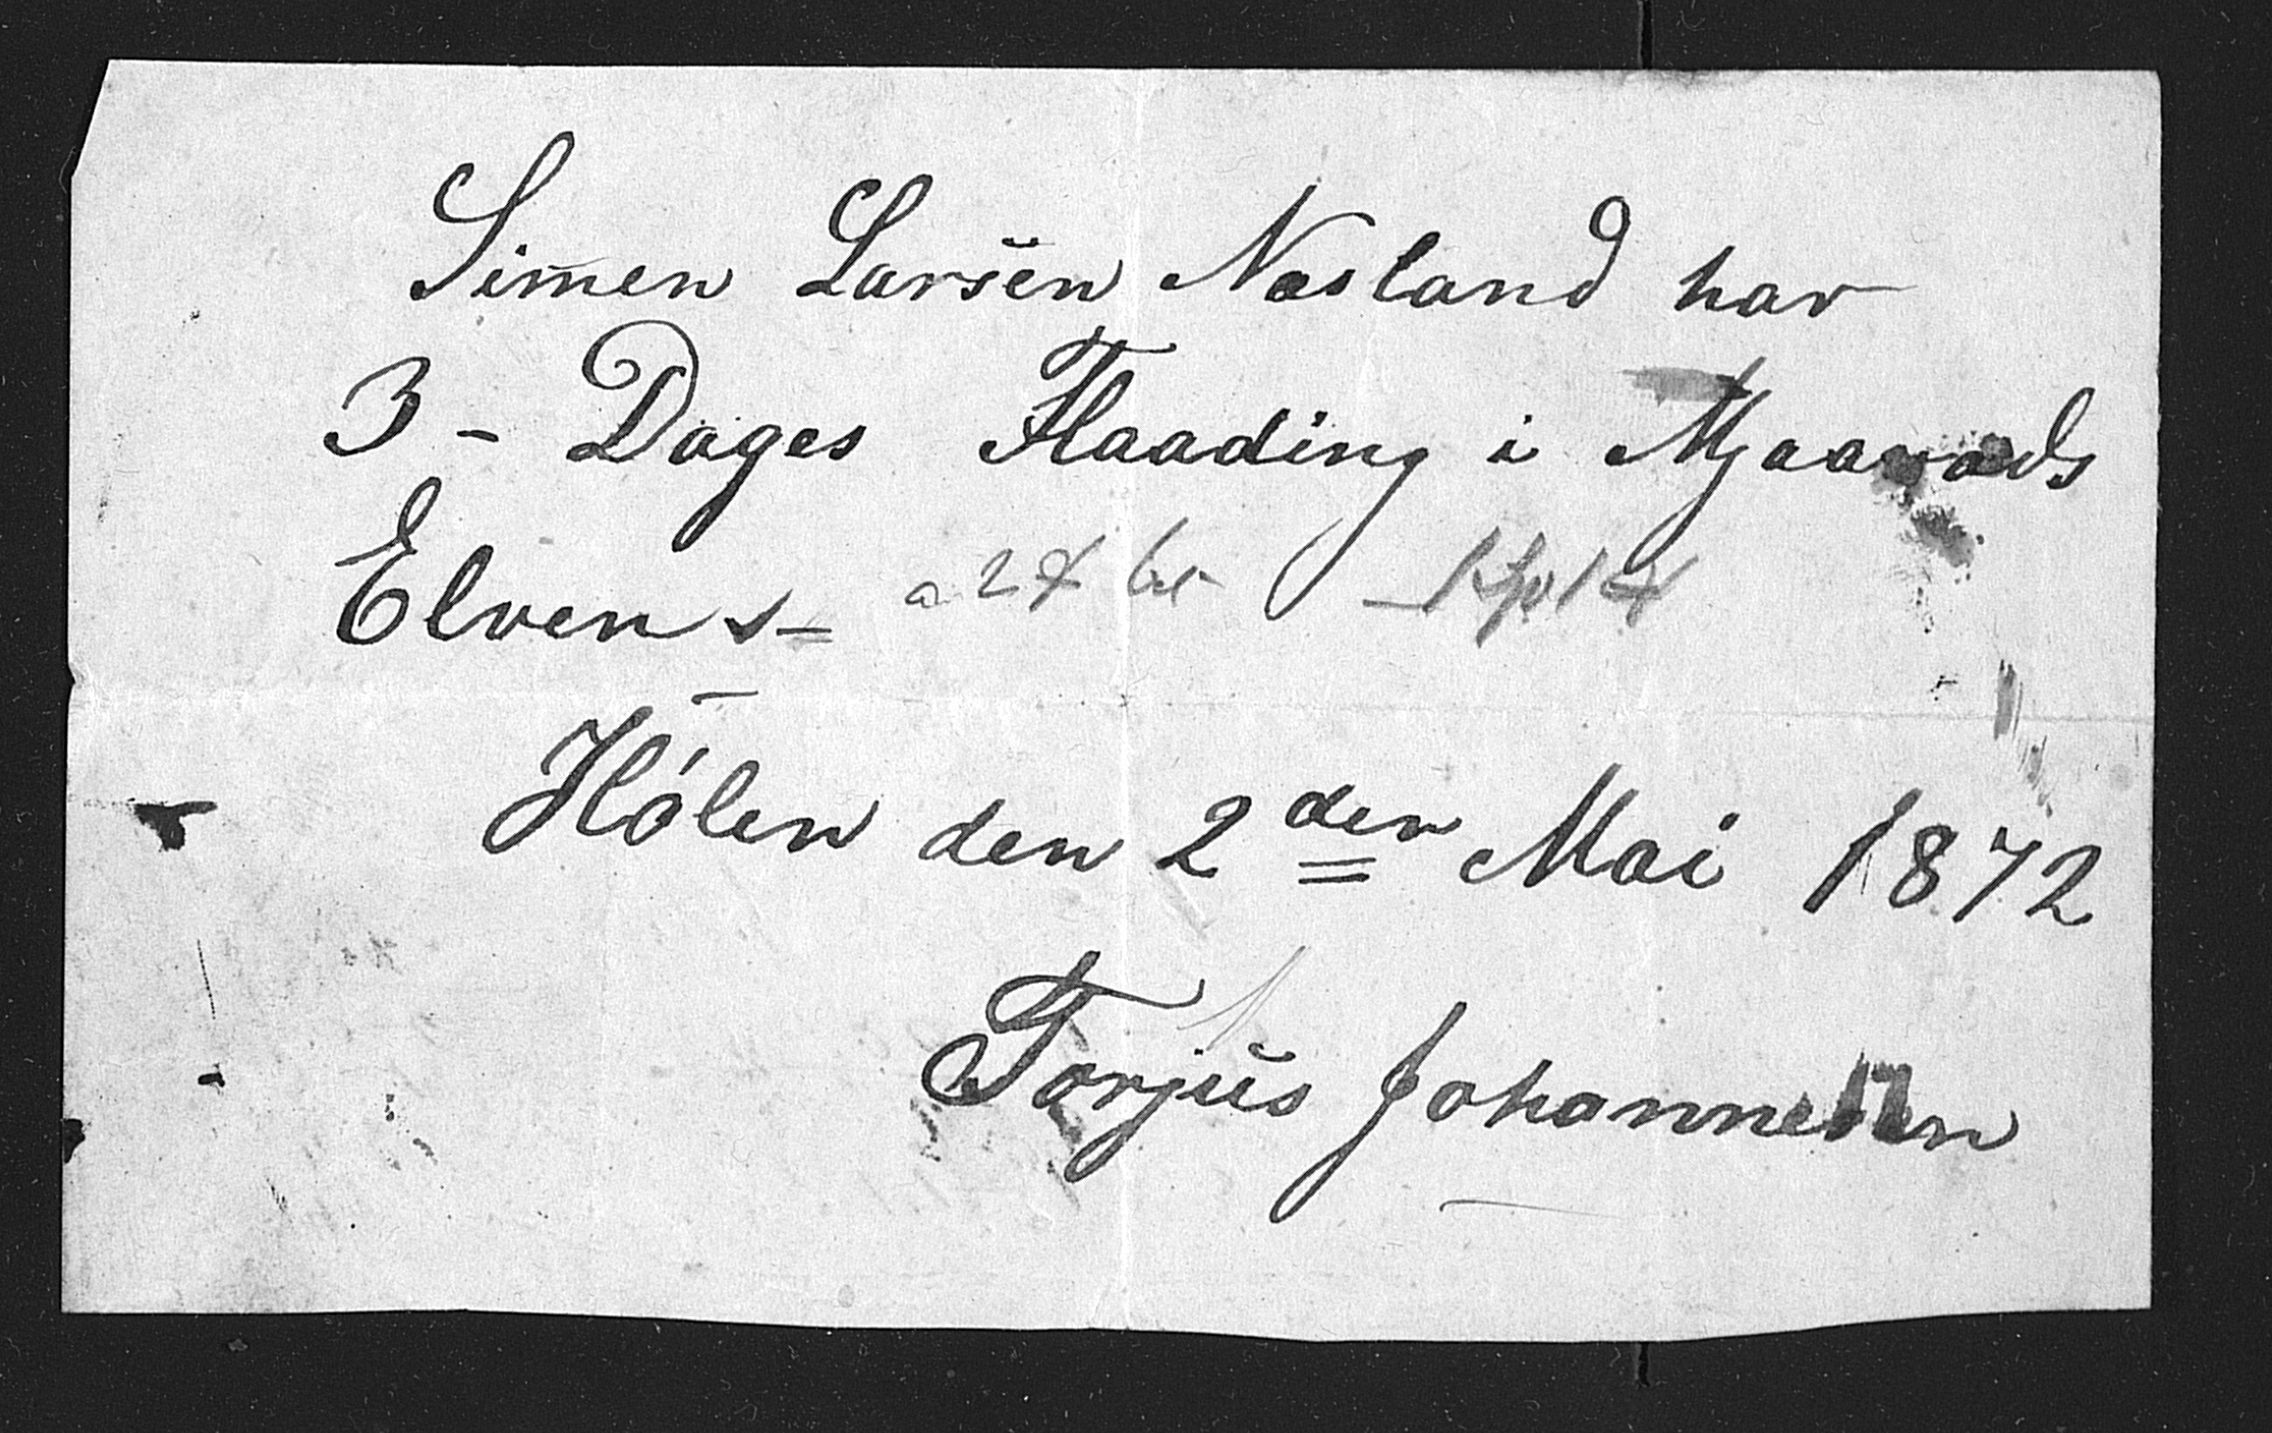 Simen Larsen Nasland har
3 - Dages Flaading i Mjaavads
Elven s= a 24
Hólen den 2den Mai 1872
Torjus Johannesen